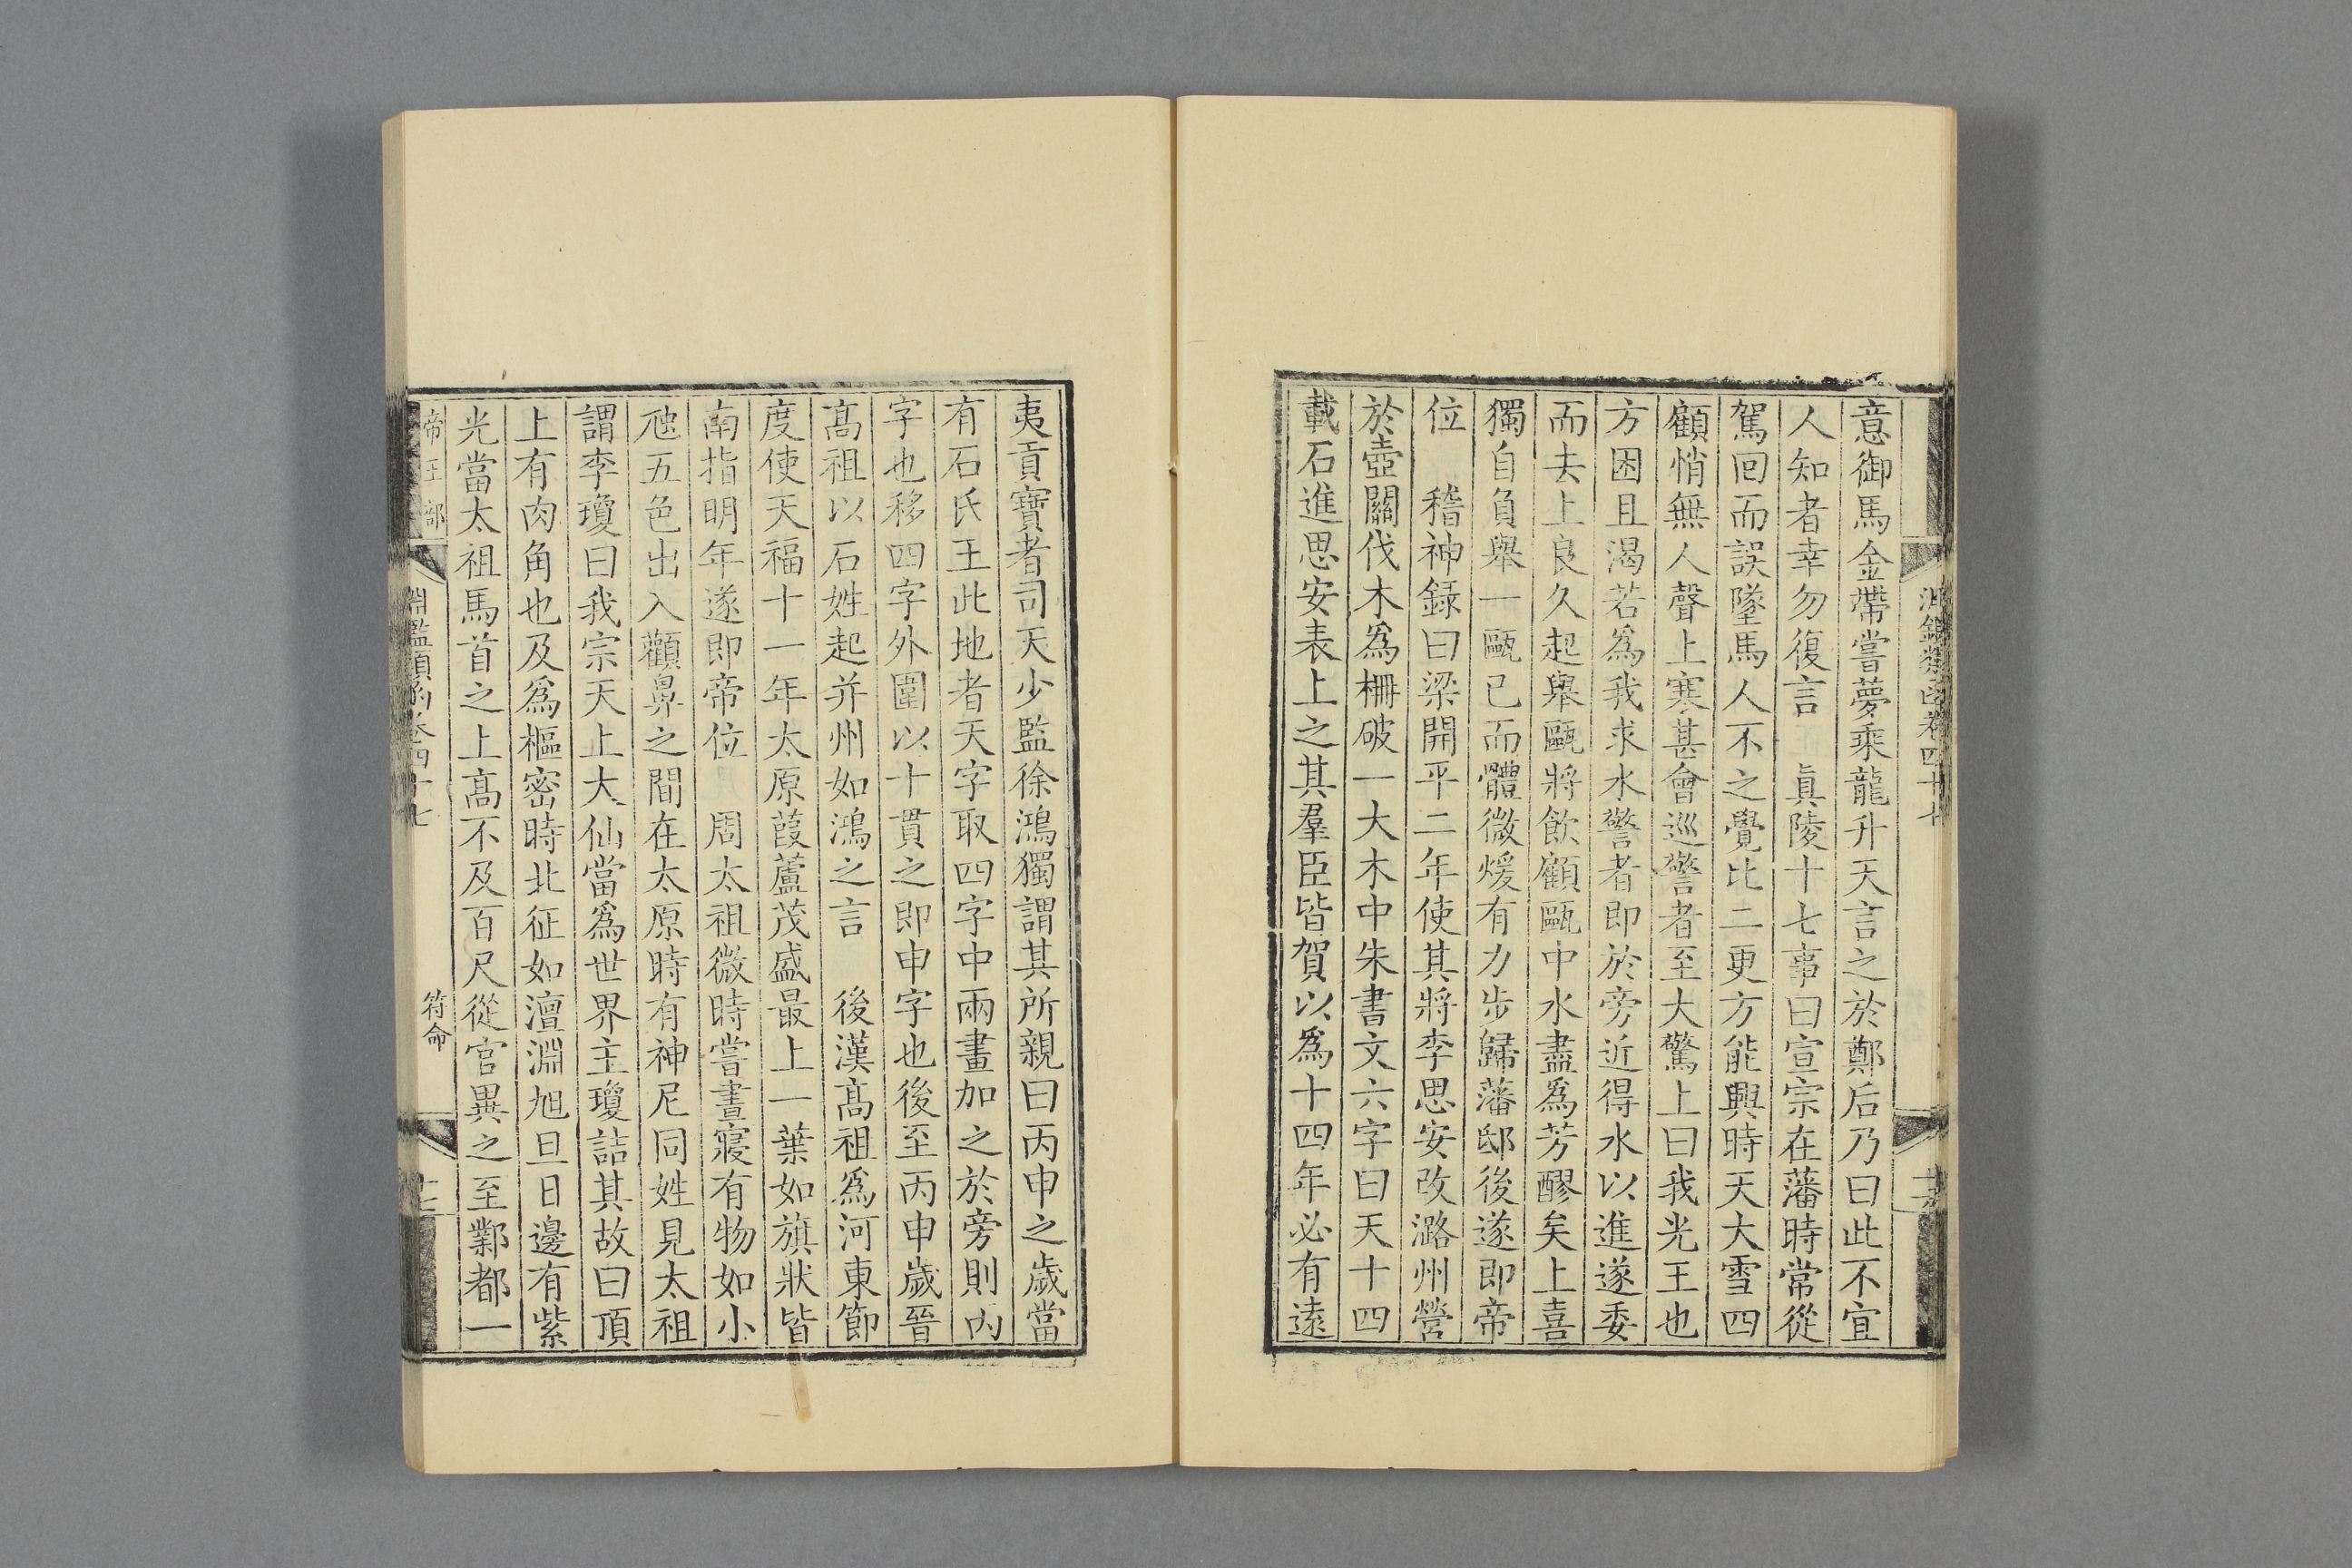 淵鑑類函卷四十七
意御馬金帶嘗夢乘龍升天言之於鄭后乃曰此不宜
人知者幸勿復言　眞陵十七事曰宣宗在藩時常從
駕回而誤墜馬人不之覺比二更方能興時天大雪四
顧悄無人聲上寒甚會巡警者至大驚上曰我光王也
方困且渴若爲我求水警者即於旁近得水以進遂委
而去上良久起舉甌將飲顧甌中水盡爲芳醪矣上喜
獨自負舉一甌已而體微煖有力步歸藩邸後遂即帝
位　稽神録曰梁開平二年使其將李思安攻潞州營
於壺關伐木爲柵破一大木中朱書文六字曰天十四
載石進思安表上之其羣臣皆賀以爲十四年必有遠
夷貢寳者司天少監徐鴻獨謂其所親曰丙申之歲當
有石氏王此地者天字取四字中兩畫加之於旁則丙
字也移四字外圍以十貫之即申字也後至丙申歲晉
髙祖以石姓起并州如鴻之言　後漢髙祖爲河東節
度使天福十一年太原葭蘆茂盛最上一葉如旗狀皆
南指明年遂即帝位　周太祖微時嘗晝寢有物如小
虺五色出入顴鼻之間在太原時有神尼同姓見太祖
謂李瓊曰我宗天上大仙當爲世界主瓊詰其故曰頂
上有肉角也及爲樞密時北征如澶淵旭旦日邊有紫
光當太祖馬首之上髙不及百尺從官異之至鄴都一
帝王部
淵鑑類函卷四十七
符命